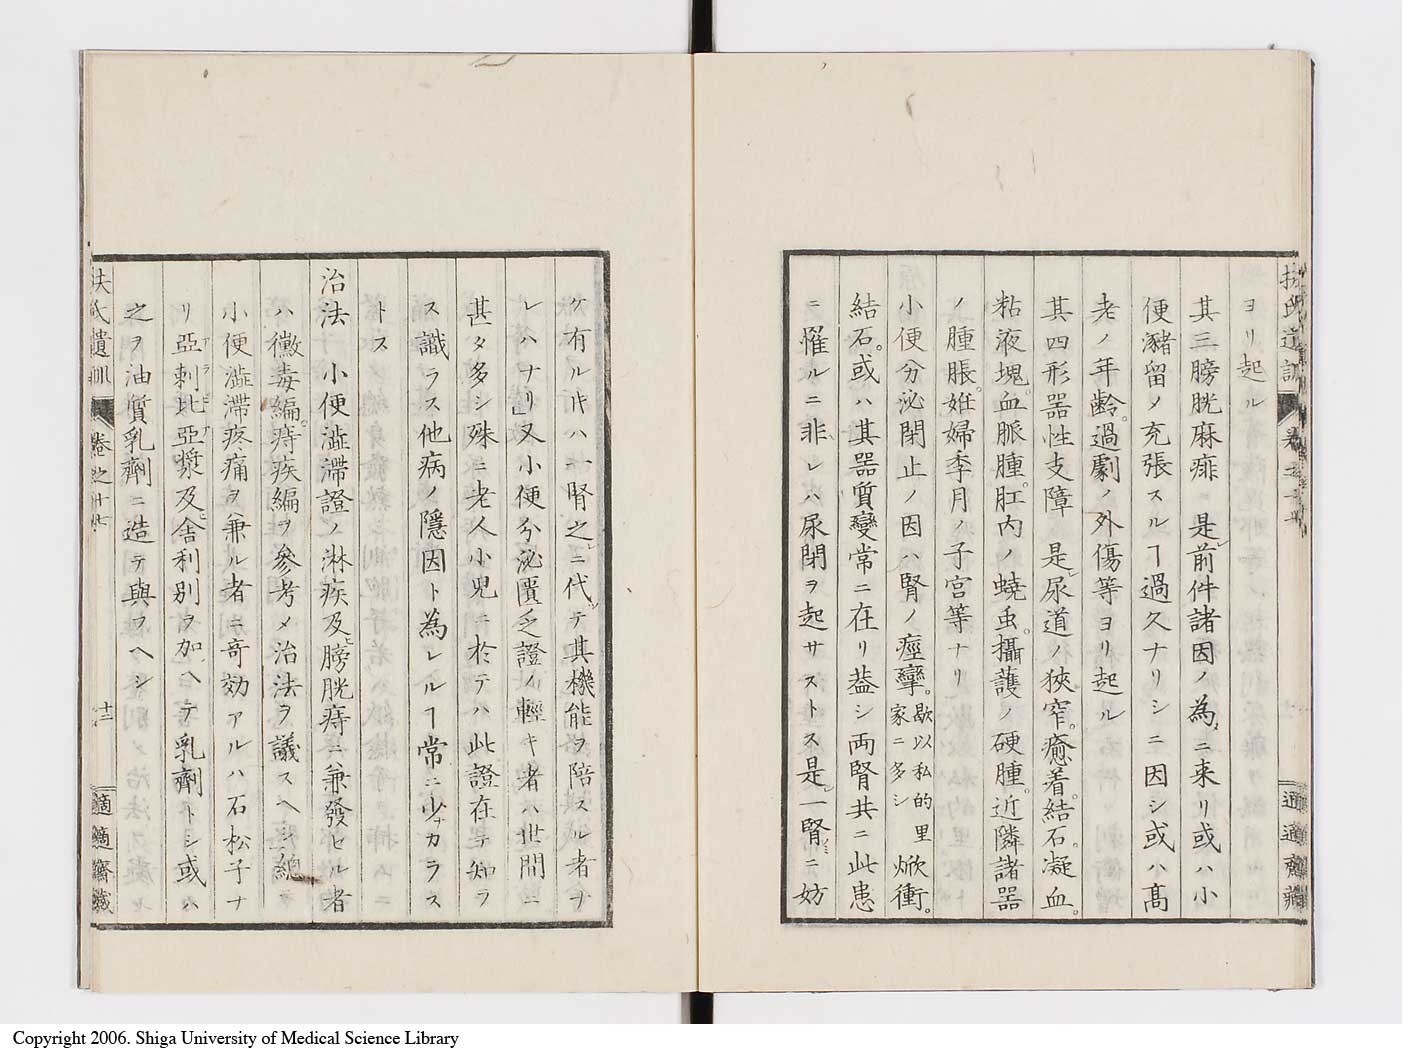 ヨリ起ル
其三膀胱麻痺 是前件諸因ノ為ニ来リ或ハ小
便瀦留メ充張スルヿ過久ナリシニ因シ或ハ髙
老ノ年齢。過劇ノ外傷等ヨリ起ル
其四形器性支障 是尿道ノ狹窄。癒着。結石。凝血。
粘液塊。血脈腫。肛内ノ蟯虫。攝護ノ硬腫。近隣諸器
ノ腫脹。妊婦季月ノ子宮等ナリ
小便分泌閉止ノ因ハ腎ノ痙攣。歇以私的里家ニ多シ焮衝。
結石。或ハ其器質變常ニ在リ葢シ両腎共ニ此患
ニ罹ルニ非レハ尿閉ヲ起サストス是レ一腎ニ妨
ケ有ルキハ一腎之ニ代テ其機能ヲ陪スル者ナ
レハナリ」又小便分泌匱乏證ノ輕キ者ハ世間ニ
甚タ多シ殊ニ老人小兒ニ於テハ此證在テ知ラ
ス識ラス他病ノ隱因ト為レルヿ常ニ少カラス
トス
治法 小便澁滯證ノ淋疾及ヒ膀胱痔ニ兼發セル者
ハ黴毒編。痔疾編ヲ參考メ治法ヲ議スヘシ總
小便澁滯疼痛ヲ兼ル者ニ奇効アルハ石松子ナ
リ亞刺比亞漿及ヒ舎利別ヲ加ヘテ乳劑トシ或ハ
之ヲ油質乳劑ニ造テ與フヘシ
扶氏遺訓 卷之十七 十三 適適齋藏
Copyright 2006. Shiga University of Medical Science Library